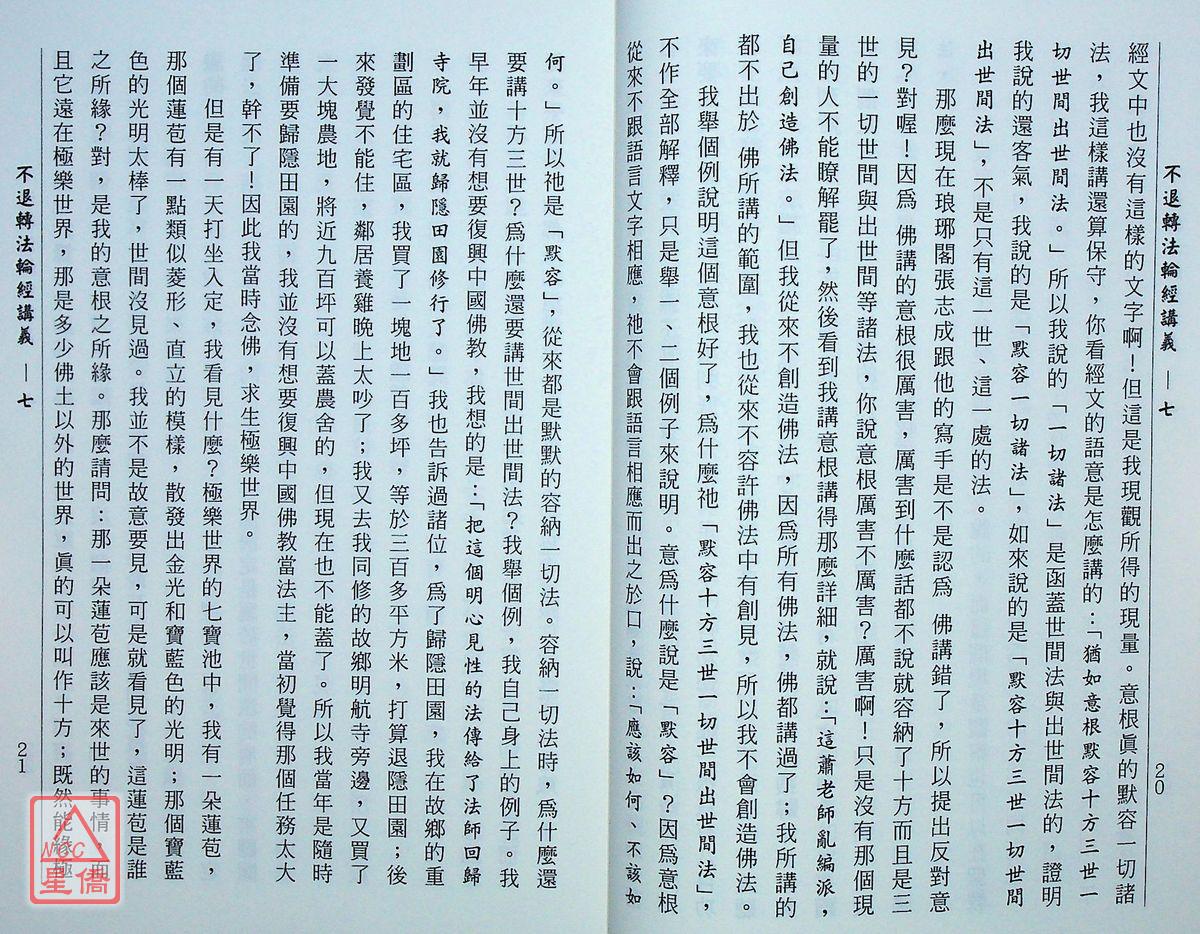 不退轉法輪經講義 — 七
20
經文中也沒有這樣的文字啊！但這是我現觀所得的現量。意根眞的默容一切諸
法，我這樣講還算保守，你看經文的語意是怎麼講的：「猶如意根默容十方三世一
切世間出世間法。」所以我說的「一切諸法」是函蓋世間法與出世間法的，證明
我說的還客氣，我說的是「默容一切諸法」，如來說的是「默容十方三世一切世間
出世間法」，不是只有這一世、這一處的法。
那麼現在琅琊閣張志成跟他的寫手是不是認爲 佛講錯了，所以提出反對意
見？對喔！因爲 佛講的意根很厲害，厲害到什麼話都不說就容納了十方而且是三
世的一切世間與出世間等諸法，你說意根厲害不厲害？厲害啊！只是沒有那個現
量的人不能瞭解罷了，然後看到我講意根講得那麼詳細，就說：「這蕭老師亂編派，
自己創造佛法。」但我從來不創造佛法，因爲所有佛法，佛都講過了；我所講的
都不出於 佛所講的範圍，我也從來不容許佛法中有創見，所以我不會創造佛法。
我舉個例說明這個意根好了，爲什麼祂「默容十方三世一切世間出世間法」，
不作全部解釋，只是舉一、二個例子來說明。意爲什麼說是「默容」？因爲意根
從來不跟語言文字相應，祂不會跟語言相應而出之於口，說：「應該如何、不該如
何。」所以祂是「默容」，從來都是默默的容納一切法。容納一切法時，爲什麼還
要講十方三世？爲什麼還要講世間出世間法？我舉個例，我自己身上的例子。我
早年並沒有想要復興中國佛教，我想的是：「把這個明心見性的法傳給了法師回歸
寺院，我就歸隱田園修行了。」我也告訴過諸位，爲了歸隱田園，我在故鄉的重
劃區的住宅區，我買了一塊地一百多坪，等於三百多平方米，打算退隱田園；後
來發覺不能住，鄰居養雞晚上太吵了；我又去我同修的故鄉明航寺旁邊，又買了
一大塊農地，將近九百坪可以蓋農舍的，但現在也不能蓋了。所以我當年是隨時
準備要歸隱田園的，我並沒有想要復興中國佛教當法主，當初覺得那個任務太大
了，幹不了！因此我當時念佛，求生極樂世界。
但是有一天打坐入定，我看見什麼？極樂世界的七寶池中，我有一朵蓮苞，
那個蓮苞有一點類似菱形、直立的模樣，散發出金光和寶藍色的光明；那個寶藍
色的光明太棒了，世間沒見過。我並不是故意要見，可是就看見了，這蓮苞是誰
之所緣？對，是我的意根之所緣。那麼請問：那一朵蓮苞應該是來世的事情，而
且它遠在極樂世界，那是多少佛土以外的世界，眞的可以叫作十方；既然能緣極
不退轉法輪經講義 — 七
21
NCC
星僑